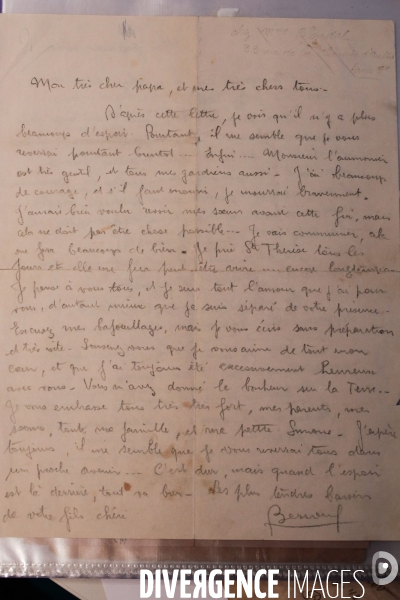 Mon très cher papa, et mes très chers tous -
D'après cette lettre, je vois qu'il n'y a plus
beaucoup d'espoir. Pourtant, il me semble que je vous
reverrai pourtant bientôt... Enfin!... Monsieur l'aumonier
est très gentil, et tous mes gardiens aussi. J'ai beaucoup
de courage, et s'il faut mourir, je mourrai bravement.
J'aurais bien voulu revoir mes sœurs avant cette fin, mais
ça ne doit pas être chose possible... Je vais communier, ça
me fera beaucoup de bien. Je prie Ste Thérèse tous les
jours et elle me fera peut-être vivre encore longtemps -
Je pense à vous tous, et je sens tout l'amour que j'ai pour
vous, d'autant mieux que je suis séparé de votre présence -
Excusez mes, mais je vous écris sans préparation
et très vite. Sachez que je vous aime de tout mon
cœur, et que j'ai toujours été excessivement heureux
avec vous - Vous m'avez donné le bonheur sur la Terre -
Je vous embrasse tous très très fort, mes parents, mes
sœurs, toute ma famille, et ma petite Simone - J'espère
toujours, il me semble que je vous reverrai tous dans
un proche avenir... C'est dur, mais quand l'espoir
est là derrière, tout va bien - Les plus tendres baisers
de votre fils chéri
DIVERGENCE IMAGES